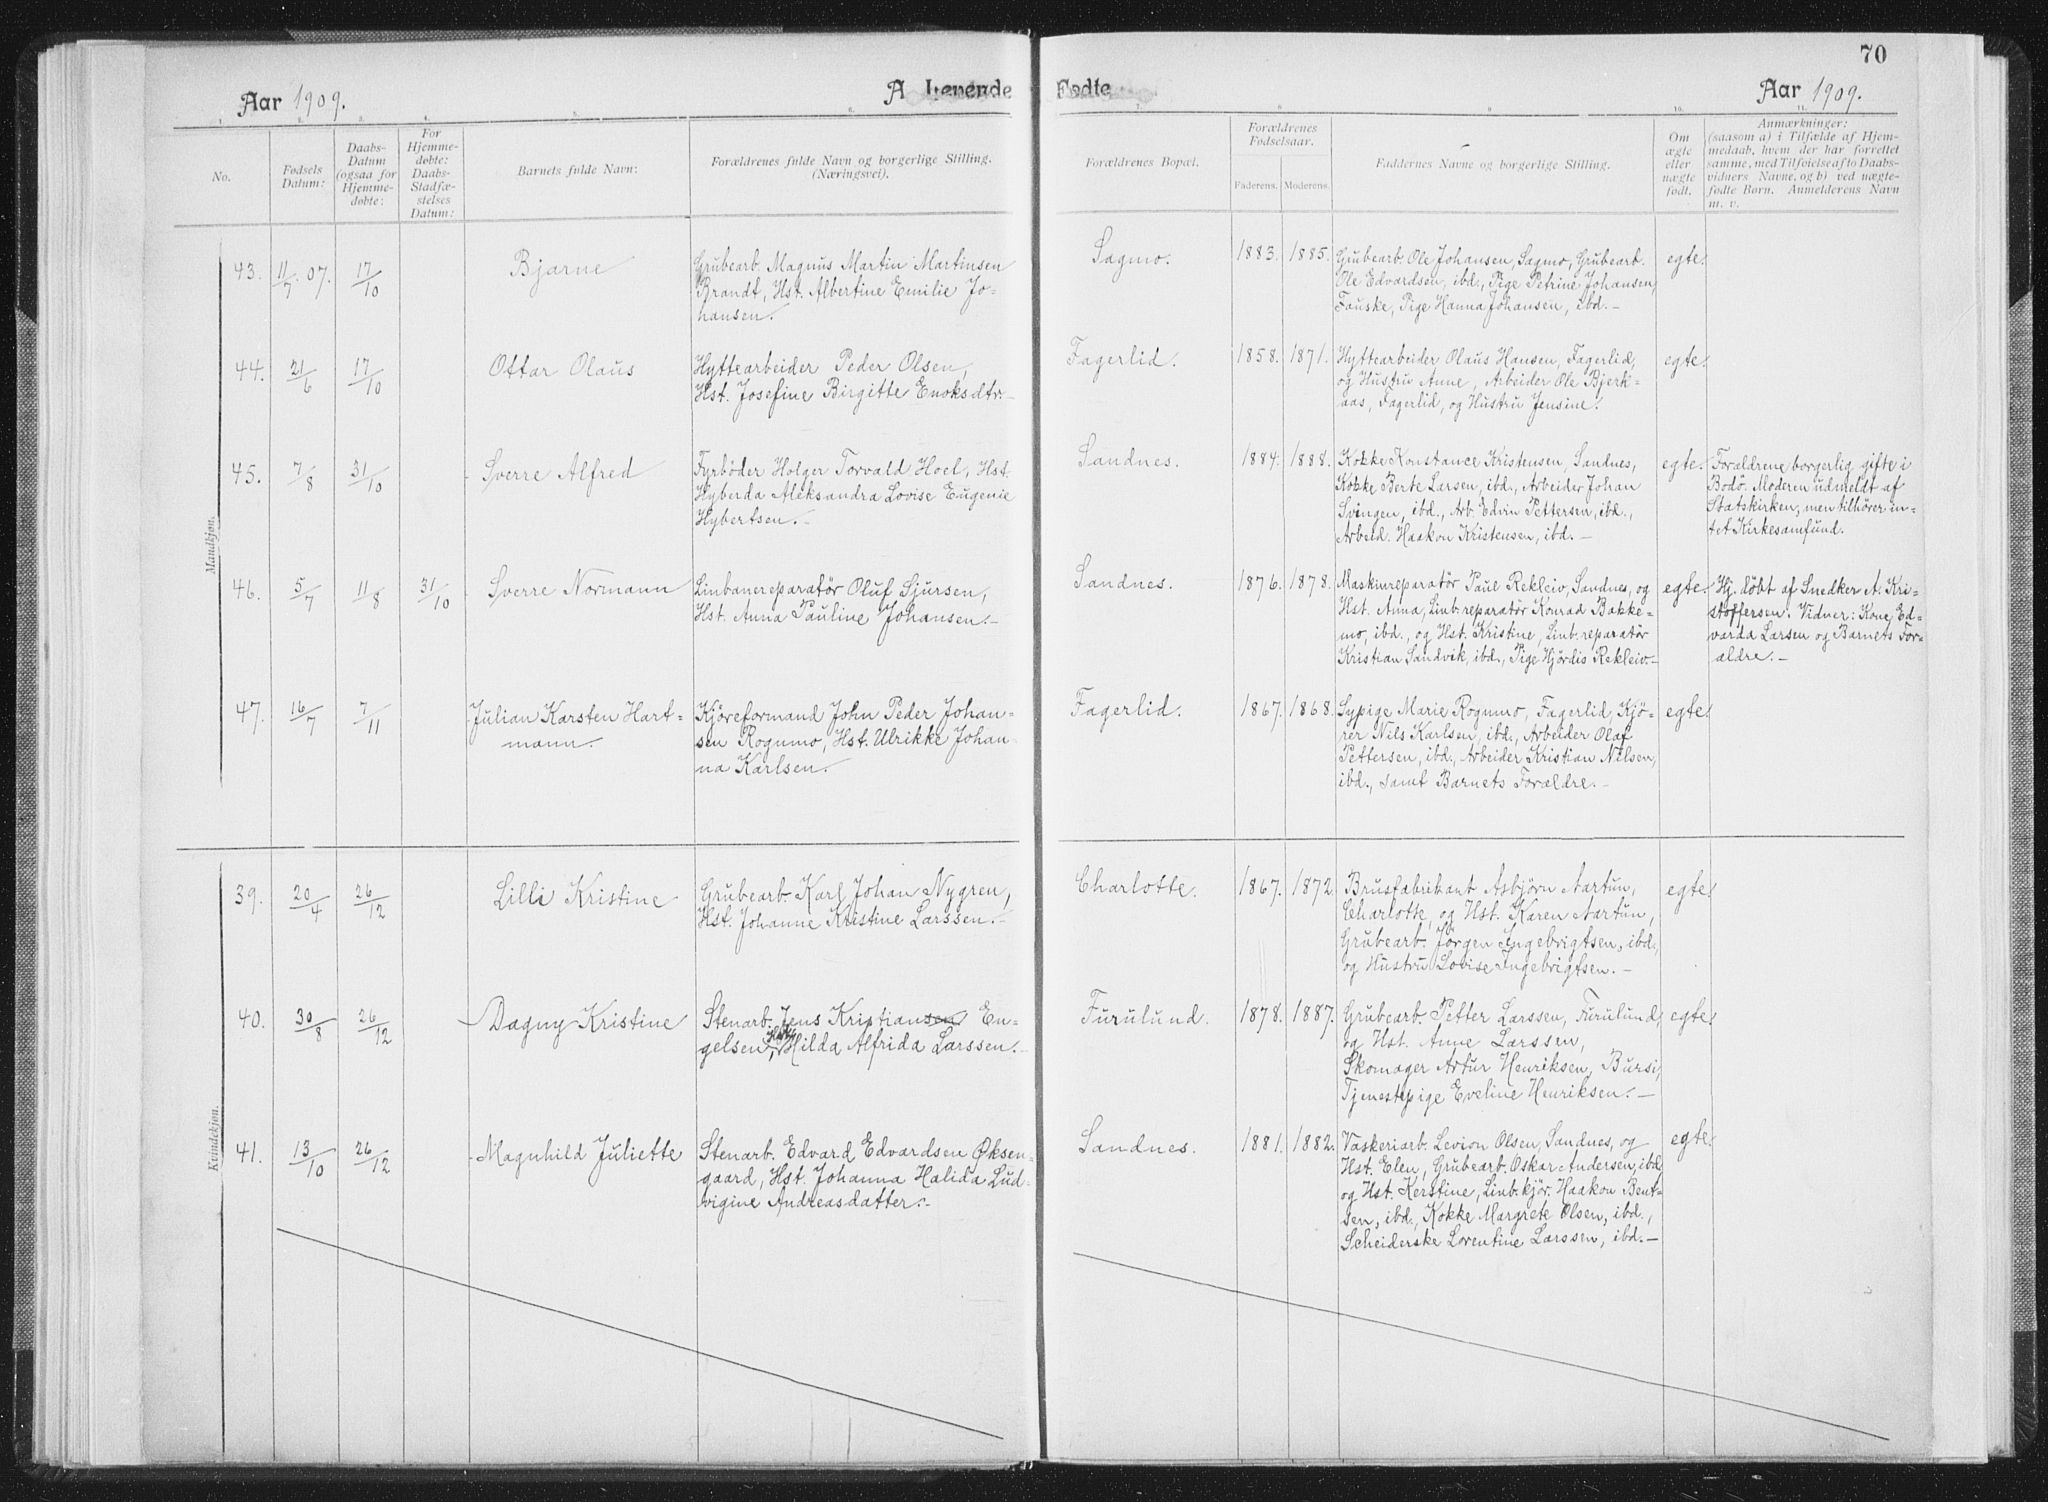 70
Aar 1909. A Levende Fødte Aar 1909.
1. 2. 3. 4. 5. 6. 7. 8. 9. 10. 11.
No.
Fødsels Datum:
Daabs-Datum (ogsaa for Hjemme-døbte:
For Hjemme-døbte: Daabs-Stadfæ-stelses Datum:
Barnets fulde Navn:
Forældrenes fulde Navn og borgerlige Stilling. (Næringsvei).
Forældrenes Bopæl.
Forældrenes Fødselsaar.
Faderens. Moderens.
Faddernes Navne og borgerlige Stilling.
Om ægte eller uægte født.
Anmærkninger:
(saasom a) i Tilfælde af Hjem-
medaab, hvem der har forrettet
samme, med Tilføielse af to Daabs-
vidners Navne, og b) ved uægte-
fødte Børn. Anmelderens Navn
m. v.
Mandkjøn.
43. 11/7 07. 17/10 Bjarne
Grubearb. Magnus Martin Martinsen
Brandt, Hst. Albertine Emilie Jo-
hansen.
Sagmo. 1883. 1885.
Grubearb. Ole Johansen, Sagmo, Grubearb.
Ole Edvardsen, ibd., Pige Petrine Johansen,
Fauske, Pige Hanna Johansen, ibd.-
egte.
44. 21/6 17/10 Ottar Olaus
Hyttearbeider Peder Olsen,
Hst. Josefine Birgitte Enoksdtr.-
Fagerlid. 1858. 1871.
Hyttearbeider Olaus Hansen, Fagerlid,
og Hustru Anne, Arbeider Ole Bjerk-
aas, Fagerlid, og Hustru Jensine.
egte.
45. 7/8 31/10 Sverre Alfred
Fyrbøder Holger Torvald Hoel, Hst.
Hyberda Aleksandra Lovise Eugenie
Hybertsen.-
Sandnes. 1884. 1888.
Kokke Konstance Kristensen, Sandnes,
Kokke Berte Larsen, ibd., Arbeider Johan
Svingen, ibd., Arb. Edvin Pettersen, ibd.,
Arbeid. Haakon Kristensen, ibd.-
egte.
Forældrene borgerlig gifte i
Bodø. Moderen udmeldt af
Statskirken, men tilhører in-
tet Kirkesamfund.
46. 5/7 11/8 31/10 Sverre Normann
Linbanereparatør Oluf Sjursen,
Hst. Anna Pauline Johansen.-
Sandnes. 1876. 1878.
Maskinreparatør Paul Rekleiv, Sandnes, og
Hst. Anna, Linb.reparatør Konrad Bakke-
mo, ibd., og Hst. Kristine, Linb.reparatør
Kristian Sandvik, ibd., Pige Hjørdis Rekleiv.-
egte.
Hj. døbt af Snedker A. Kri-
stoffersen. Vidner: Kone Ed-
varda Larsen og Barnets For-
ældre.-
47. 16/7 7/11 Julian Karsten Hart-
mann.
Kjøreformand John Peder Johan-
sen Rognmo, Hst. Ulrikke Johan-
na Karlsen.
Fagerlid. 1867. 1868.
Sypige Marie Rognmo, Fagerlid, Kjø-
rer Nils Karlsen, ibd., Arbeider Olaf
Pettersen, ibd., Arbeider Kristian Nilsen,
ibd., samt Barnets Forældre.-
egte.
Kvindekjøn.
39. 20/4 26/12 Lilli Kristine
Grubearb. Karl Johan Nygren,
Hst. Johanne Kristine Larssen.-
Charlotte. 1867. 1872
Brusfabrikant Asbjørn Aartun,
Charlotte, og Hst. Karen Aartun,
Grubearb. Jørgen Ingebrigtsen, ibd.,
og Hustru Lovise Ingebrigtsen.-
egte.
40. 30/8 26/12 Dagny Kristine
Stenarb. Jens Kristiansen En-
gelsen, Hst. Hilda Alfrida Larssen.-
Furulund. 1878. 1887.
Grubearb. Petter Larssen, Furulund,
og Hst. Anne Larssen,
Skomager Artur Henriksen, Bursi,
Tjenestepige Eveline Henriksen.-
egte.
41. 13/10 26/12 Magnhild Juliette
Stenarb. Edvard Edvardsen Øksen-
gaard, Hst. Johanna Halida Lud-
vigine Andreasdatter.-
Sandnes. 1881. 1882.
Vaskeriarb. Levion Olsen, Sandnes, og
Hst. Elen, Grubearb. Oskar Andersen, ibd.
og Hst. Kerstine, Linb.kjør. Haakon Bent-
sen, ibd., Kokke Margrete Olsen, ibd.,
Scheiderske Lorentine Larssen, ibd.-
egte.